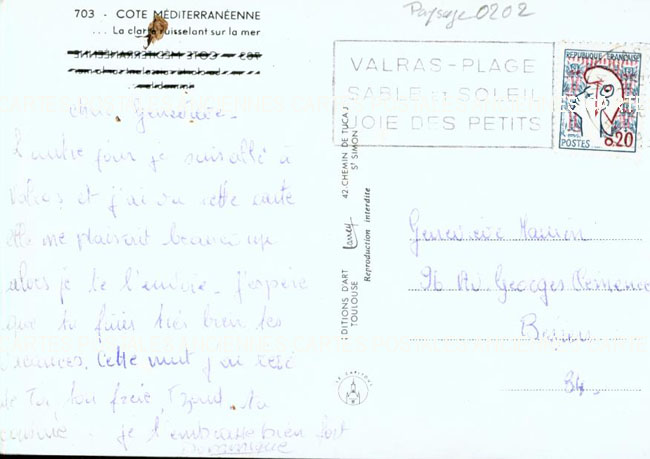 703 - COTE MÉDITERRANÉENNE
... La clarté ruisselant sur la mer
Paysage 0202
VALRAS-PLAGE
SABLE et SOLEIL
JOIE DES PETITS
REPUBLIQUE FRANÇAISE
0,20
POSTES
Geneviève
L'autre jour je suis allé à
Valras et j'ai vu cette carte
elle me plaisait beaucoup
alors je te l'envoie. J'espère
que tu fais très bien tes
vacances. Cette nuit j'ai rêvé
de Toi, ton frère
je t'embrasse bien fort
Dominique
EDITIONS D'ART Larrey 42, CHEMIN DE TUCAU
TOULOUSE ST SIMON
Reproduction interdite
LE CAPITOLE
Geneviève
96 Av Georges Clemenceau
34
CARTES POSTALES ANCIENNES